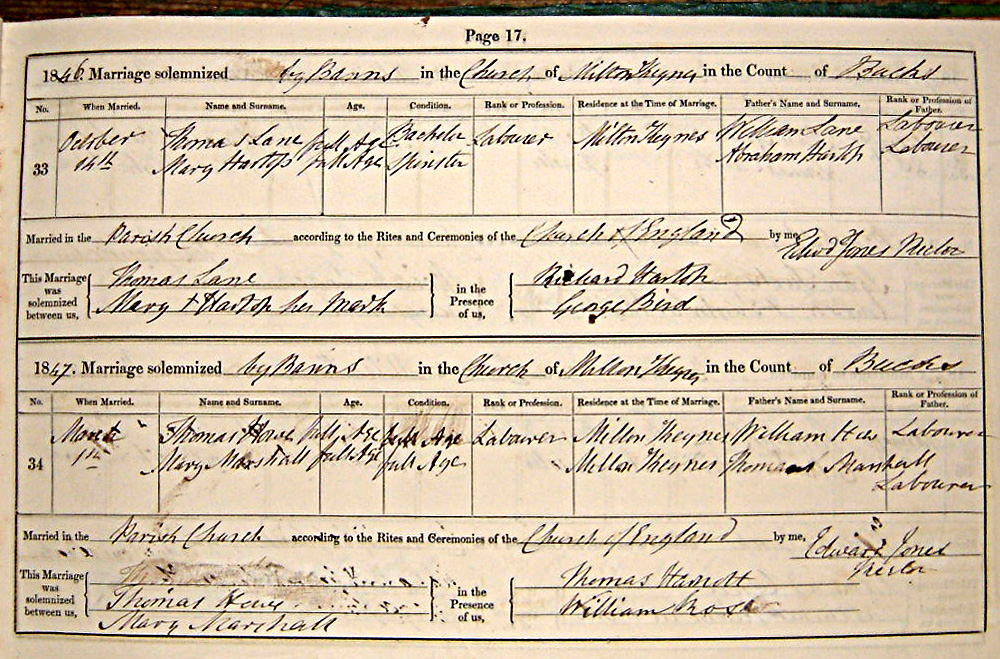 Page 17.
1846. Marriage solemnized by Banns in the Church of Milton Keynes in the Count of Bucks
No. When Married. Name and Surname. Age. Condition. Rank or Profession. Residence at the Time of Marriage. Father's Name and Surname. Rank or Profession of Father.
33 October 14th Thomas Lane full Age Bachelor Labourer Milton Keynes William Lane Labourer
Mary Hartop full Age Spinster Abraham Hartop Labourer
Married in the Parish Church according to the Rites and Ceremonies of the Church of England by me Edwd Jones Rector
This Marriage was solemnized between us, Thomas Lane in the Presence of us, Richard Hartop
Mary + Hartop her mark George Bird
1847. Marriage solemnized by Banns in the Church of Milton Keynes in the Count of Bucks
No. When Married. Name and Surname. Age. Condition. Rank or Profession. Residence at the Time of Marriage. Father's Name and Surname. Rank or Profession of Father.
34 March 1st Thomas full Age full Age Labourer Milton Keynes William Labourer
Mary Marshall full Age full Age Milton Keynes Thomas Marshall
Labourer
Married in the Parish Church according to the Rites and Ceremonies of the Church of England by me, Edward Jones
Rector
This Marriage was solemnized between us, in the Presence of us, Thomas
Thomas William Rose
Mary Marshall